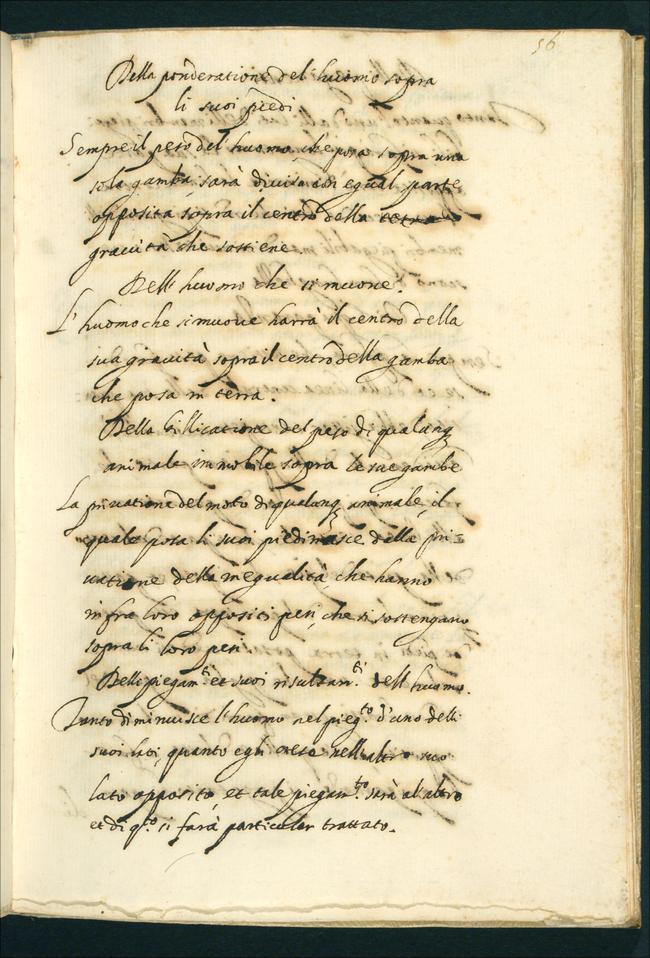 56
Della ponderatione del huomo sopra
li suoi piedi
Sempre il peso del huomo, che posa sopra una
sola gamba, sarà diviso con egual parte
opposita sopra il centro della
gravità che sostiene
Dell' huomo che si muove.
L' huomo che si muove harrà il centro della
sua gravità sopra il centro della gamba
che posa in terra.
Della billicatione del peso di qualunq
animale immobile sopra le sue gambe
La privatione del moto di qualunq animale, il
quale posa li suoi piedi nasce dalla pri=
vatione della inegualità, che hanno
infra loro oppositi pesi, che si sostengano
sopra li loro pesi
Delli piegam.ti et suoi risultam.ti dell huomo.
Tanto diminuisce l'huomo nel pieg.to d'uno delli
suoi lati, quanto egli crese nell altro suo
lato opposito, et tale piegam.to sarà al altro
et di q.to si farà particular trattato.